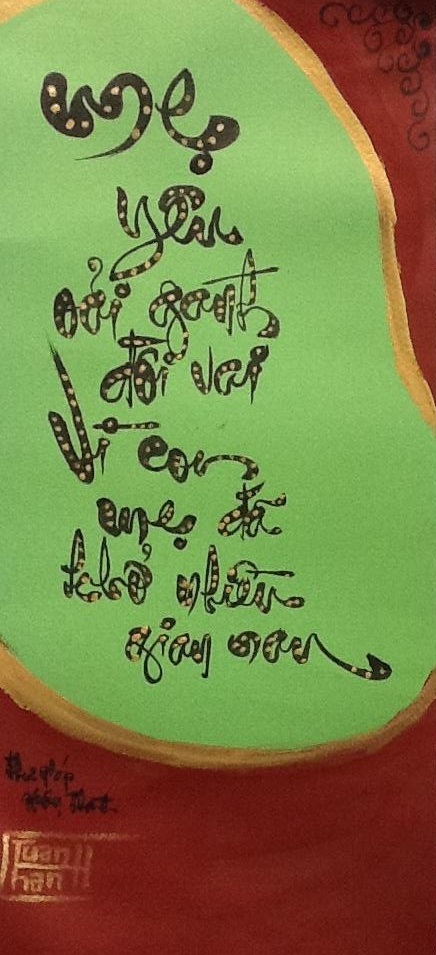 Mẹ
Yêu
oải gánh
đôi vai
Vì con
mẹ đã
khổ nhiều
gian nan
Thư pháp
Tuấn